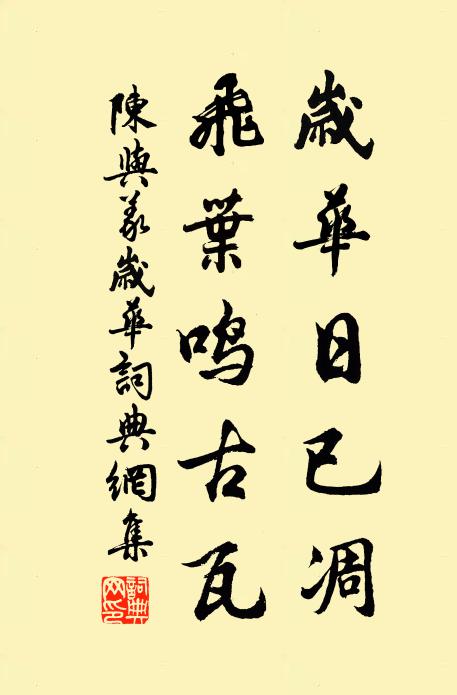 歲華日已凋
飛葉鳴古瓦
陳與義歲華詞典網集
詞典网印